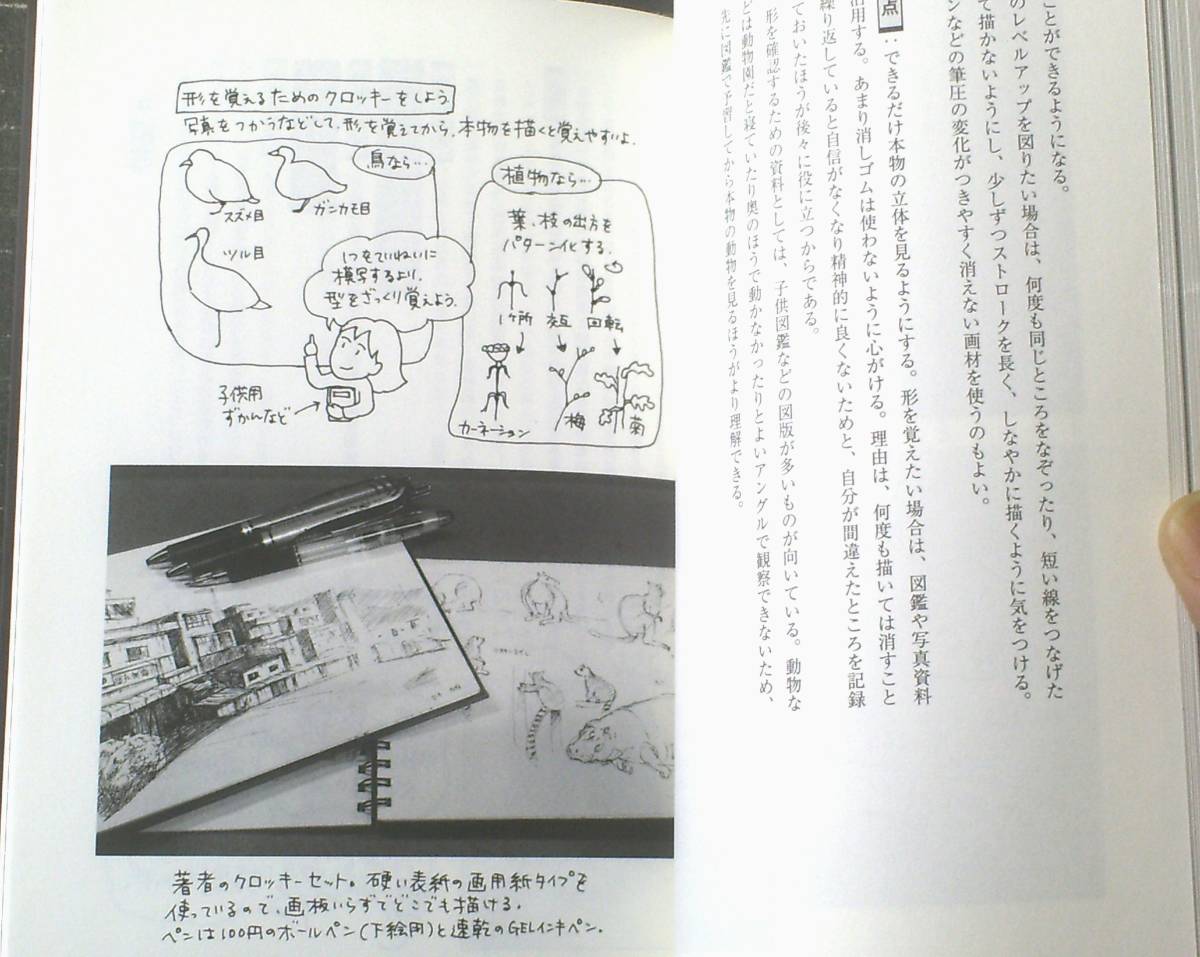 ことができるようになる。
のレベルアップを図りたい場合は、何度も同じところをなぞったり、短い線をつなげた
て描かないようにし、少しずつストロークを長く、しなやかに描くように気をつける。
ンなどの筆圧の変化がつきやすく消えない画材を使うのもよい。
点：できるだけ本物の立体を見るようにする。形を覚えたい場合は、図鑑や写真資料
活用する。あまり消しゴムは使わないように心がける。理由は、何度も描いては消すこと
繰り返していると自信がなくなり精神的に良くないためと、自分が間違えたところを記録
ておいたほうが後々に役に立つからである。
形を確認するための資料としては、子供図鑑などの図版が多いものが向いている。動物な
どは動物園だと寝ていたり奥のほうで動かなかったりとよいアングルで観察できないため、
先に図鑑で予習してから本物の動物を見るほうがより理解できる。
形を覚えるためのクロッキーをしよう
写真をつかうなどして、形を覚えてから、本物を描くと覚えやすいよ。
鳥なら…
スズメ目
ガンカモ目
ツル目
1つをていねいに
模写するより、
型をざっくり覚えよう。
子供用
ずかんなど
植物なら…
葉、枝の出方を
パターン化する。
1ヶ所
交互
回転
カーネーション
梅
菊
著者のクロッキーセット。硬い表紙の画用紙タイプを
使っているので、画板いらずでどこでも描ける。
ペンは100円のボールペン(下絵用)と速乾のGELインキペン。